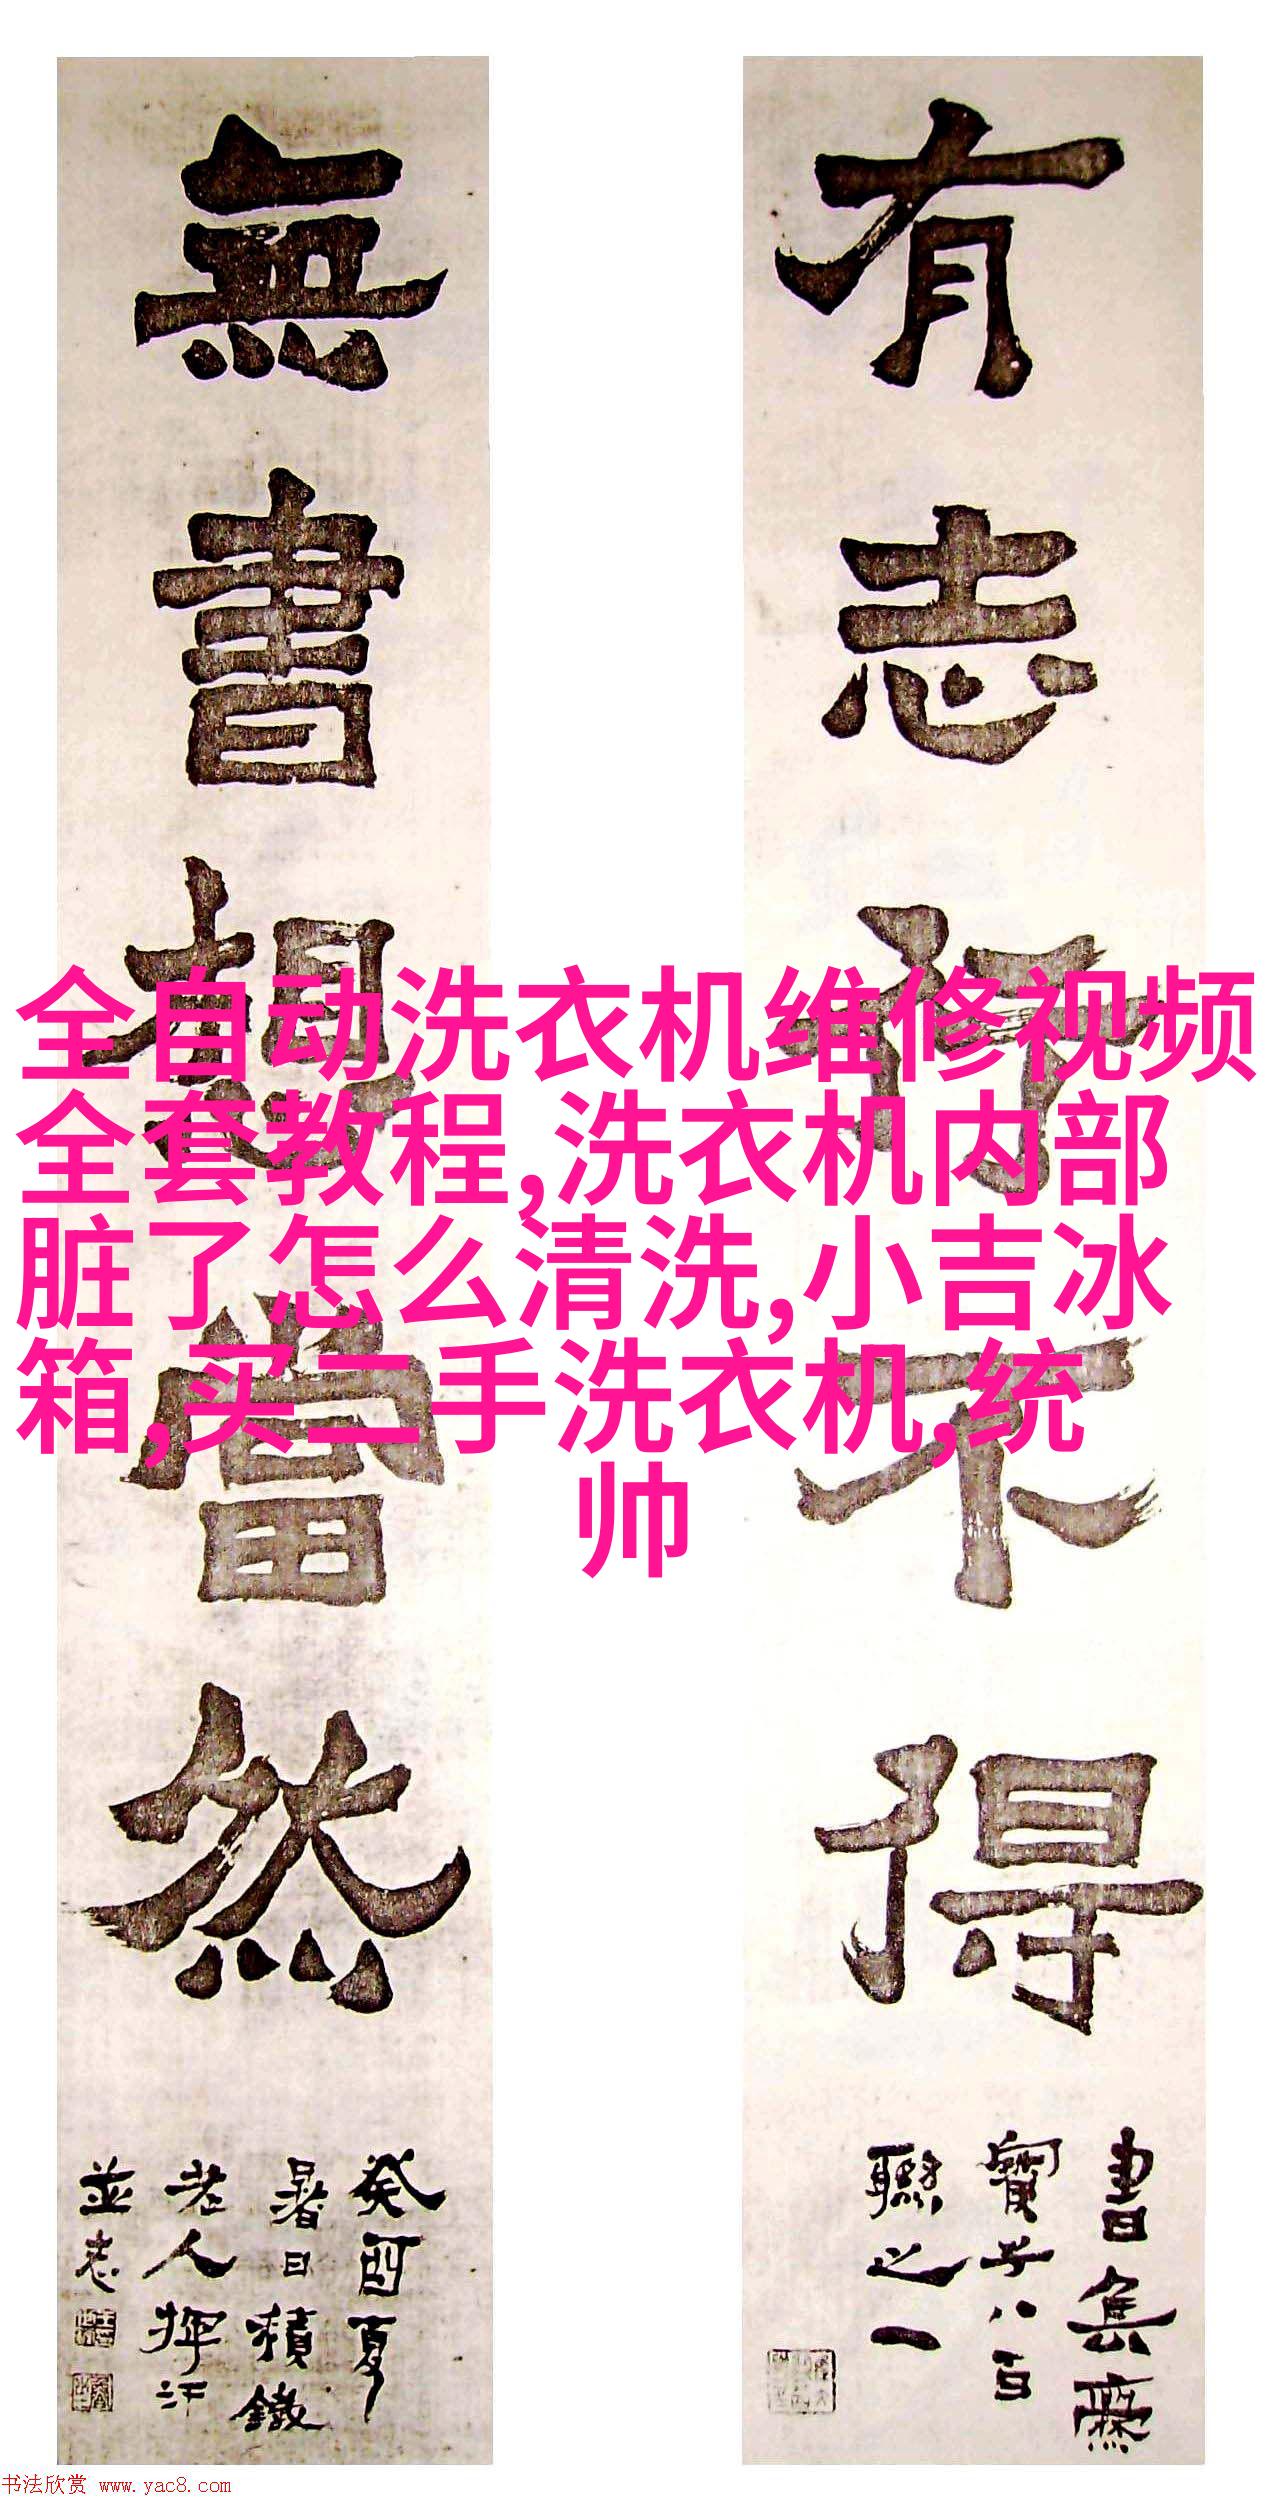 有志行不得
書集爨
寶子八百
聯之一
無書想當然
癸酉夏
暑日積鐵
老人揮汗
並志
全自动洗衣机维修视频
全套教程,洗衣机内部
脏了怎么清洗,小吉冰
箱,买二手洗衣机,统
帅
书法欣赏 www.yac8.com